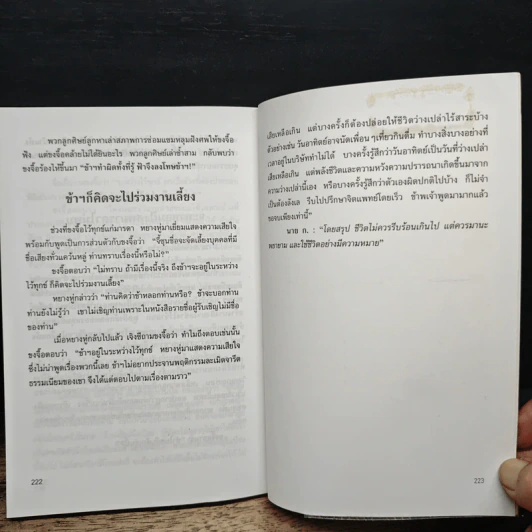 พวกลูกศิษย์ลูกหาเล่าสภาพการซ่อมแซมหลุมฝังศพให้ขงจื้อ
ฟัง แต่ขงจื้อคล้ายไม่ได้ยินอะไร พวกลูกศิษย์เล่าซ้ำสาม กลับพบว่า
ขงจื้อร้องไห้ขึ้นมา "ข้าฯทำผิดทั้งที่รู้ ฟ้าจึงลงโทษข้าฯ!"
ข้าฯก็คิดจะไปร่วมงานเลี้ยง
ช่วงที่ขงจื้อไว้ทุกข์แก่มารดา หยางหู่มาเยี่ยมแสดงความเสียใจ
พร้อมกับพูดเป็นการส่วนตัวกับขงจื้อว่า "จี้ซุนซื่อจะจัดเลี้ยงบุคคลที่มี
ชื่อเสียงทั่วแคว้นหลู่ ท่านทราบเรื่องนี้หรือไม่?"
ขงจื้อตอบว่า "ไม่ทราบ ถ้ามีเรื่องนี้จริง ถึงข้าฯจะอยู่ในระหว่าง
ไว้ทุกข์ ก็คิดจะไปงานเลี้ยง"
หยางหู่กล่าวว่า "ท่านคิดว่าข้าหลอกท่านหรือ? ข้าจะบอกท่าน
ท่านยังไม่รู้ว่า เขาไม่เชิญท่านเพราะในหนังสือรายชื่อผู้รับเชิญไม่มีชื่อ
ของท่าน"
เมื่อหยางหู่กลับไปแล้ว เจิงซีถามขงจื้อว่า ทำไมถึงตอบเช่นนั้น
ขงจื้อตอบว่า "ข้าฯอยู่ในระหว่างไว้ทุกข์ หยางหู่มาแสดงความเสียใจ
ซึ่งไม่น่าพูดเรื่องพวกนี้เลย ข้าฯไม่อยากประจานพฤติกรรมละเมิดจารีต
ธรรมเนียมของเขา จึงได้แต่ตอบไปตามเรื่องตามราว"
222
เสียเหลือเกิน แต่บางครั้งก็ต้องปล่อยให้ชีวิตว่างเปล่าไร้สาระบ้าง
ตัวอย่างเช่น วันอาทิตย์อาจนัดเพื่อน ๆ เที่ยวกินดื่ม ทำบางสิ่งบางอย่างที่
เวลาอยู่ในบริษัททำไม่ได้ บางครั้งรู้สึกว่าวันอาทิตย์เป็นวันที่ว่างเปล่า
เสียเหลือเกิน แต่พลังชีวิตและความหวังความปรารถนาเกิดขึ้นมาจาก
ความว่างเปล่านี้เอง หรือบางครั้งรู้สึกว่าตัวเองผิดปกติไปบ้าง ก็ไม่จำ
เป็นต้องลังเล รีบไปปรึกษาจิตแพทย์โดยเร็ว ข้าพเจ้าพูดมามากแล้ว
ขอจบเพียงเท่านี้"
นาย ก. : "โดยสรุป ชีวิตไม่ควรรีบร้อนเกินไป แต่ควรมานะ
พยายาม และใช้ชีวิตอย่างมีความหมาย"
223